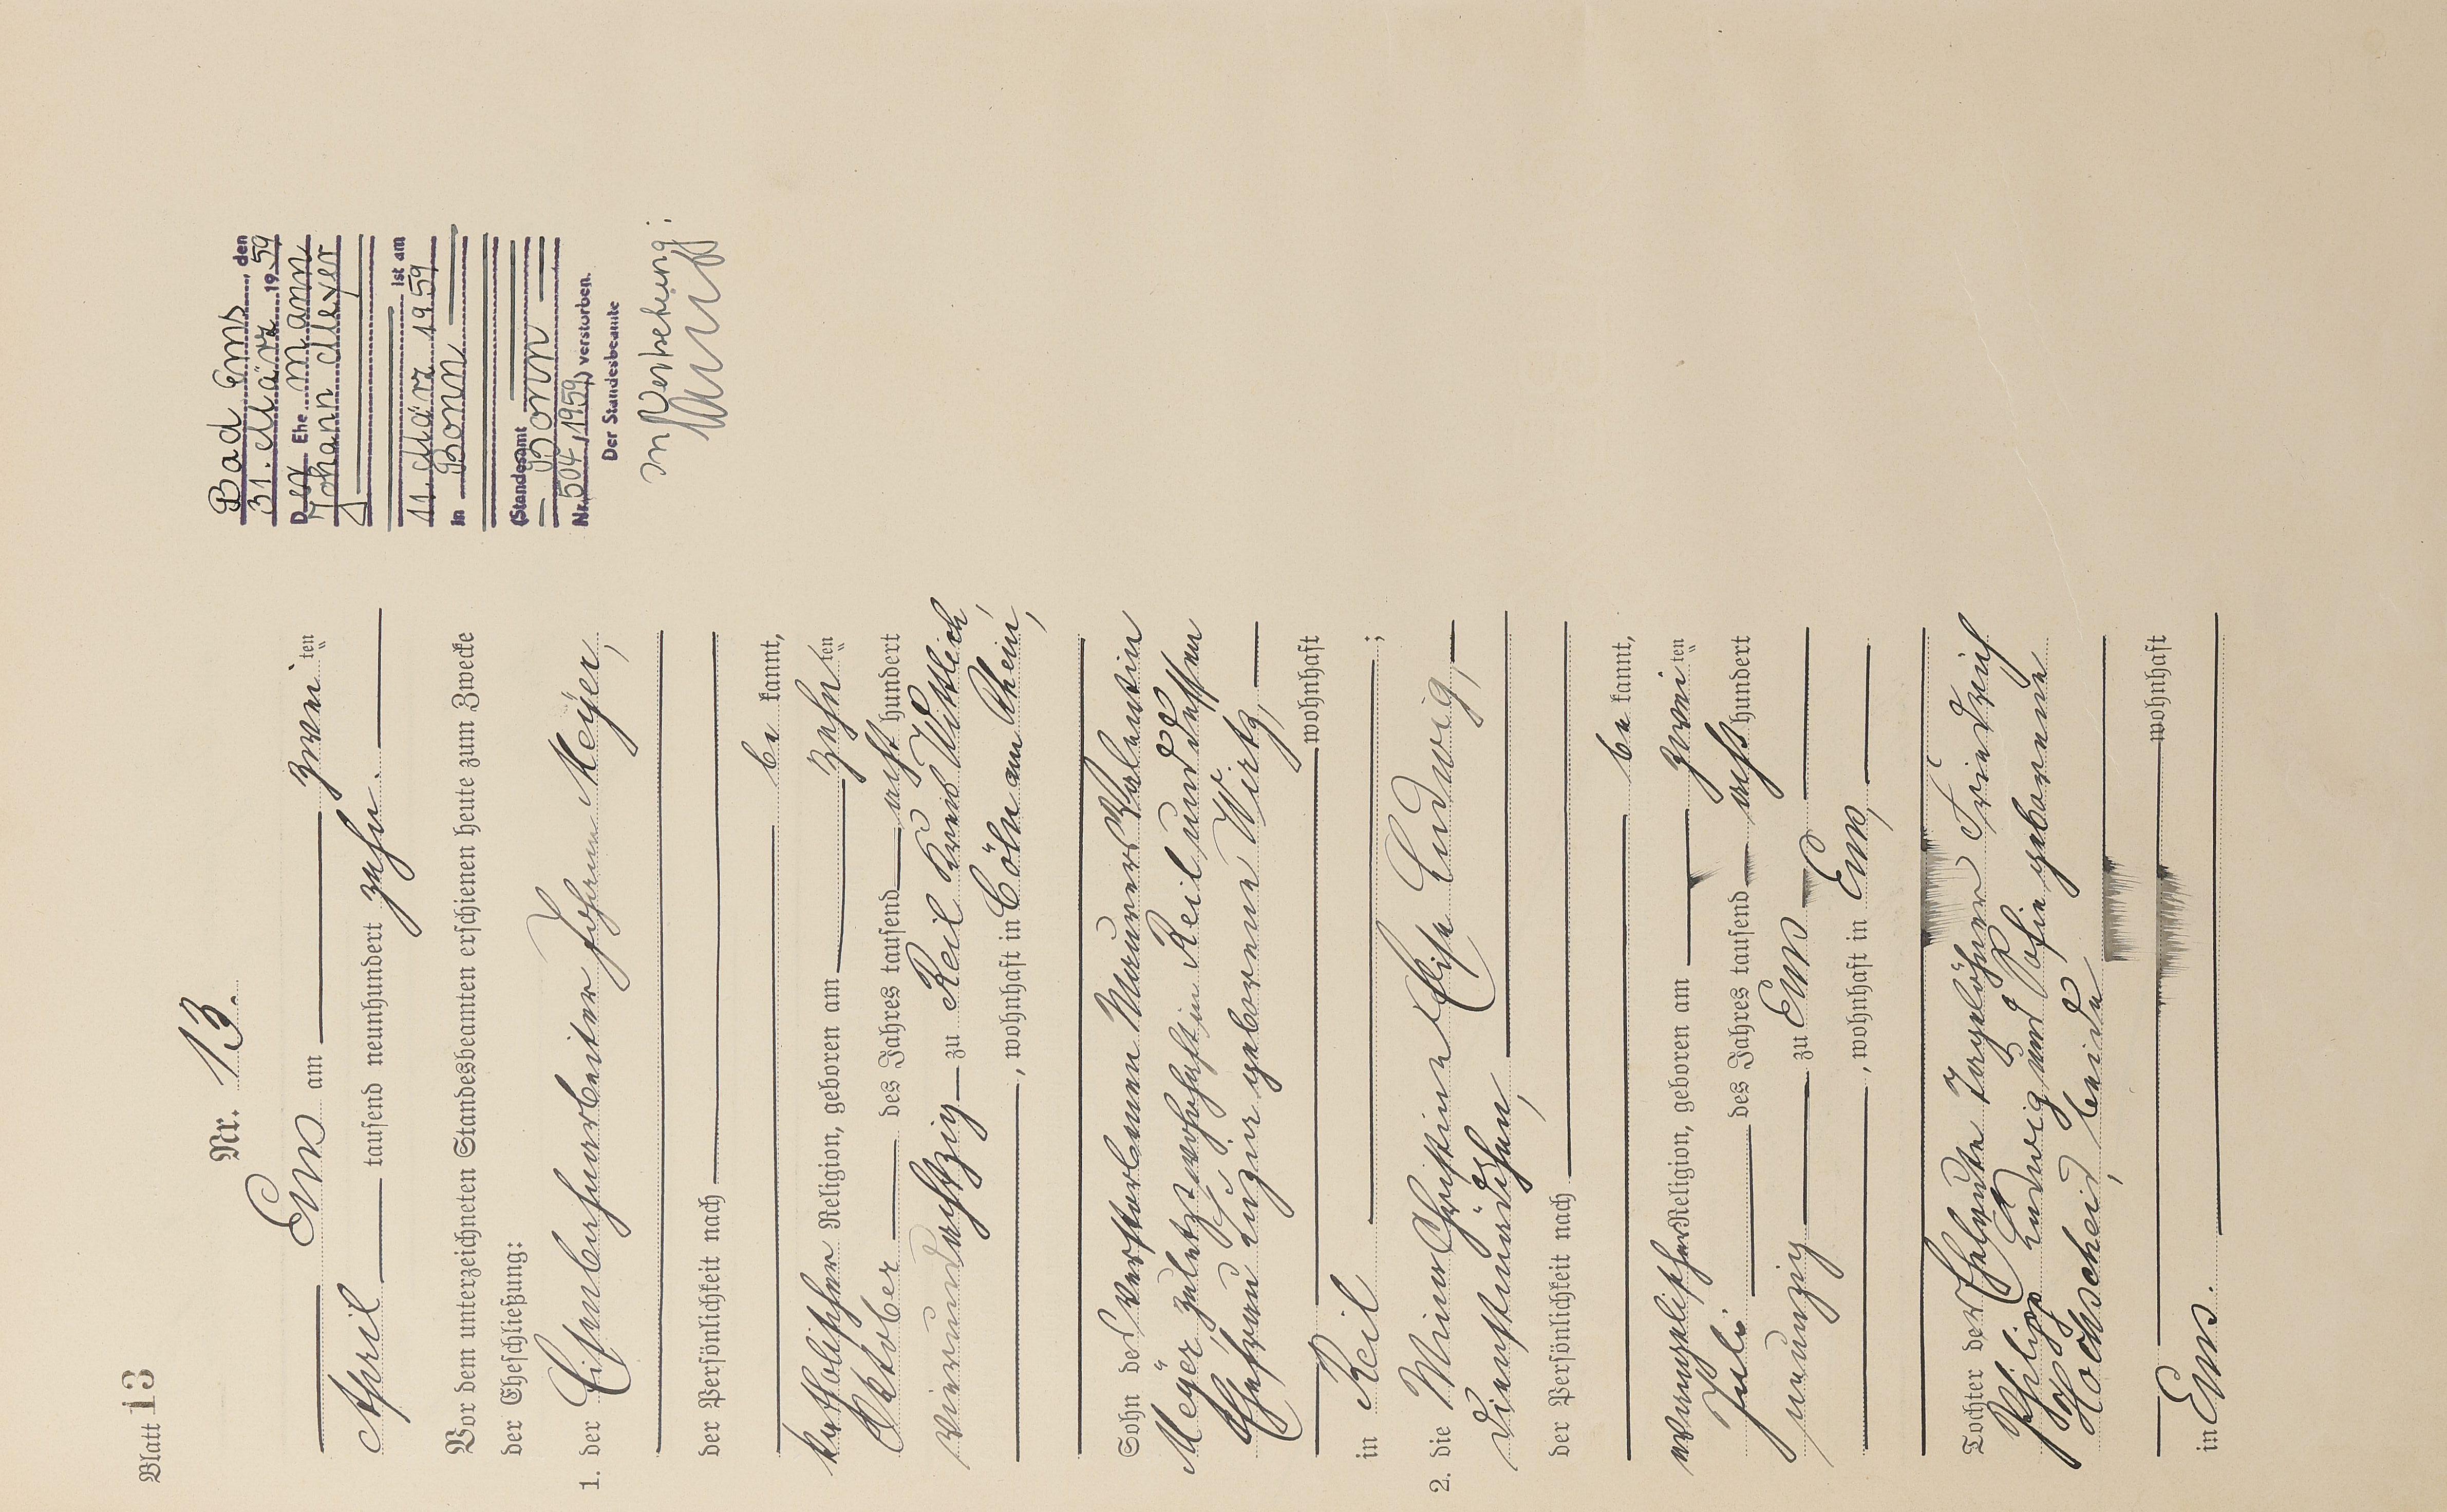 Blatt 13
Nr. 13.
Ems am zwei ten
April tausend neunhundert zehn.
Vor dem unterzeichneten Standesbeamten erschienen heute zum Zwecke
der Eheschließung:
1. der Eisenbahnarbeiter Johann Meyer,
der Persönlichkeit nach
be kannt,
katholischer Religion, geboren am zehn ten
Oktober des Jahres tausend acht hundert
vierundachtzig zu Reil Kreis Wittlich
, wohnhaft in Cöln am Rhein,
Sohn des verstorbenen Maurers Valentin
Meyer zuletzt wohnhaft in Reil und dessen
Ehefrau geborene Wirtz,
wohnhaft
in Reil ;
2. die Mina Christine Elise Ludwig,
Dienstmädchen,
der Persönlichkeit nach
be kannt,
evangelischer Religion, geboren am zwei ten
Juli des Jahres tausend acht hundert
neunzig zu Ems
, wohnhaft in Ems,
Tochter der Eheleute Tagelöhner Friedrich
Philipp Ludwig und Sofie geborenene
Hochscheid, beide
wohnhaft
in Ems.
Bad Ems, den
31. März 1959
Der Ehemann
Johann Meyer
ist am
11. März 1959
in Bonn
(Standesamt
Bonn
Nr. 504/1959) verstorben.
Der Standesbeamte
In Vertretung: